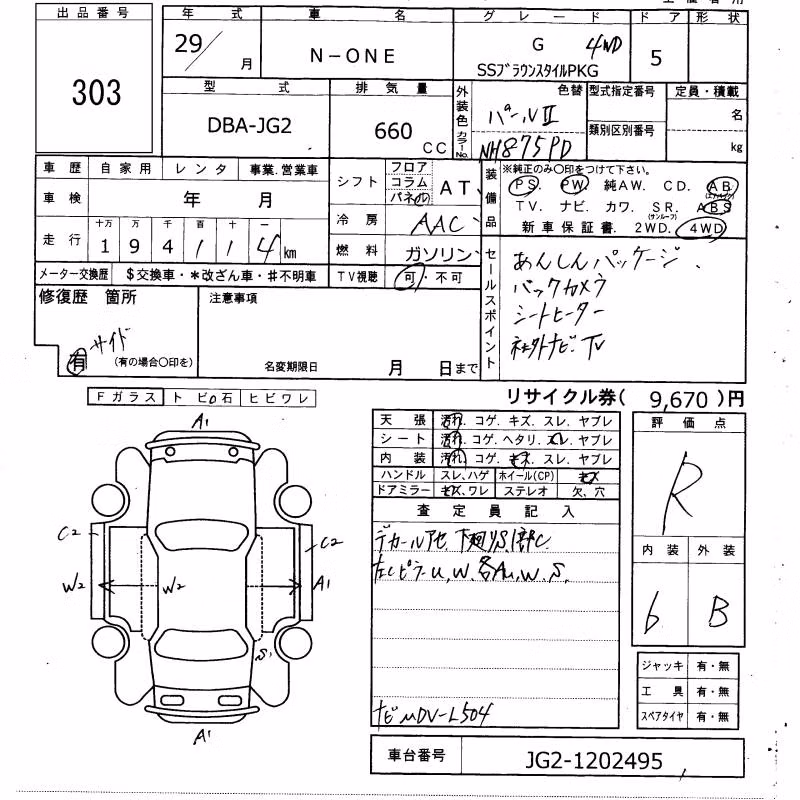 出品番号 年 式 車 名 グ レ ー ド ド ア 形 状
303 29/ 月 N-ONE G 4WD SSブラウンスタイルPKG 5
型 式 排 気 量 外装色 カラーNo. 色替 型式指定番号 定員・積載
DBA-JG2 660 CC パールⅡ NH875PD 類別区別番号 名 kg
車 歴 自 家 用 レ ン タ 事業.営業車 シフト フロア コラム パネル AT 装備品 ※純正のみ〇印をつけて下さい。
車 検 年 月 PS. PW. 純AW. CD. AB (エアバック)
走 行 十万 万 千 百 十 一 冷 房 AAC TV. ナビ. カワ. SR. ABS (サンルーフ)
1 9 4 1 1 4 km 燃 料 ガソリン 新車保証書. 2WD. 4WD
メーター交換歴 $交換車・*改ざん車・#不明車 TV視聴 可・不可 セールスポイント あんしんパッケージ、
修復歴 箇所 注意事項 バックカメラ
サイド シートヒーター
有 (有の場合〇印を) 名変期限日 月 日まで 社外ナビ.TV
Fガラス トビ石 ヒビワレ リサイクル券( 9,670 )円
天 張 汚れ. コゲ. キズ. スレ. ヤブレ 評 価 点
シート 汚れ. コゲ. ヘタリ. スレ. ヤブレ R
内 装 汚れ. コゲ. キズ. スレ. ヤブレ
ハンドル スレ.ハゲ ホイール(CP) キズ
ドアミラー キズ.ワレ ステレオ 欠.穴
査 定 員 記 入
デカールアセ 下廻りS.1部C.
左Cピラーu.W. 各Au.W.S.
内 装 外 装
6 B
ジャッキ 有・無
工 具 有・無
スペアタイヤ 有・無
ナビ DV-L504
A1
C2 C2
W2 W2 A1
S1
A1
車台番号 JG2-1202495